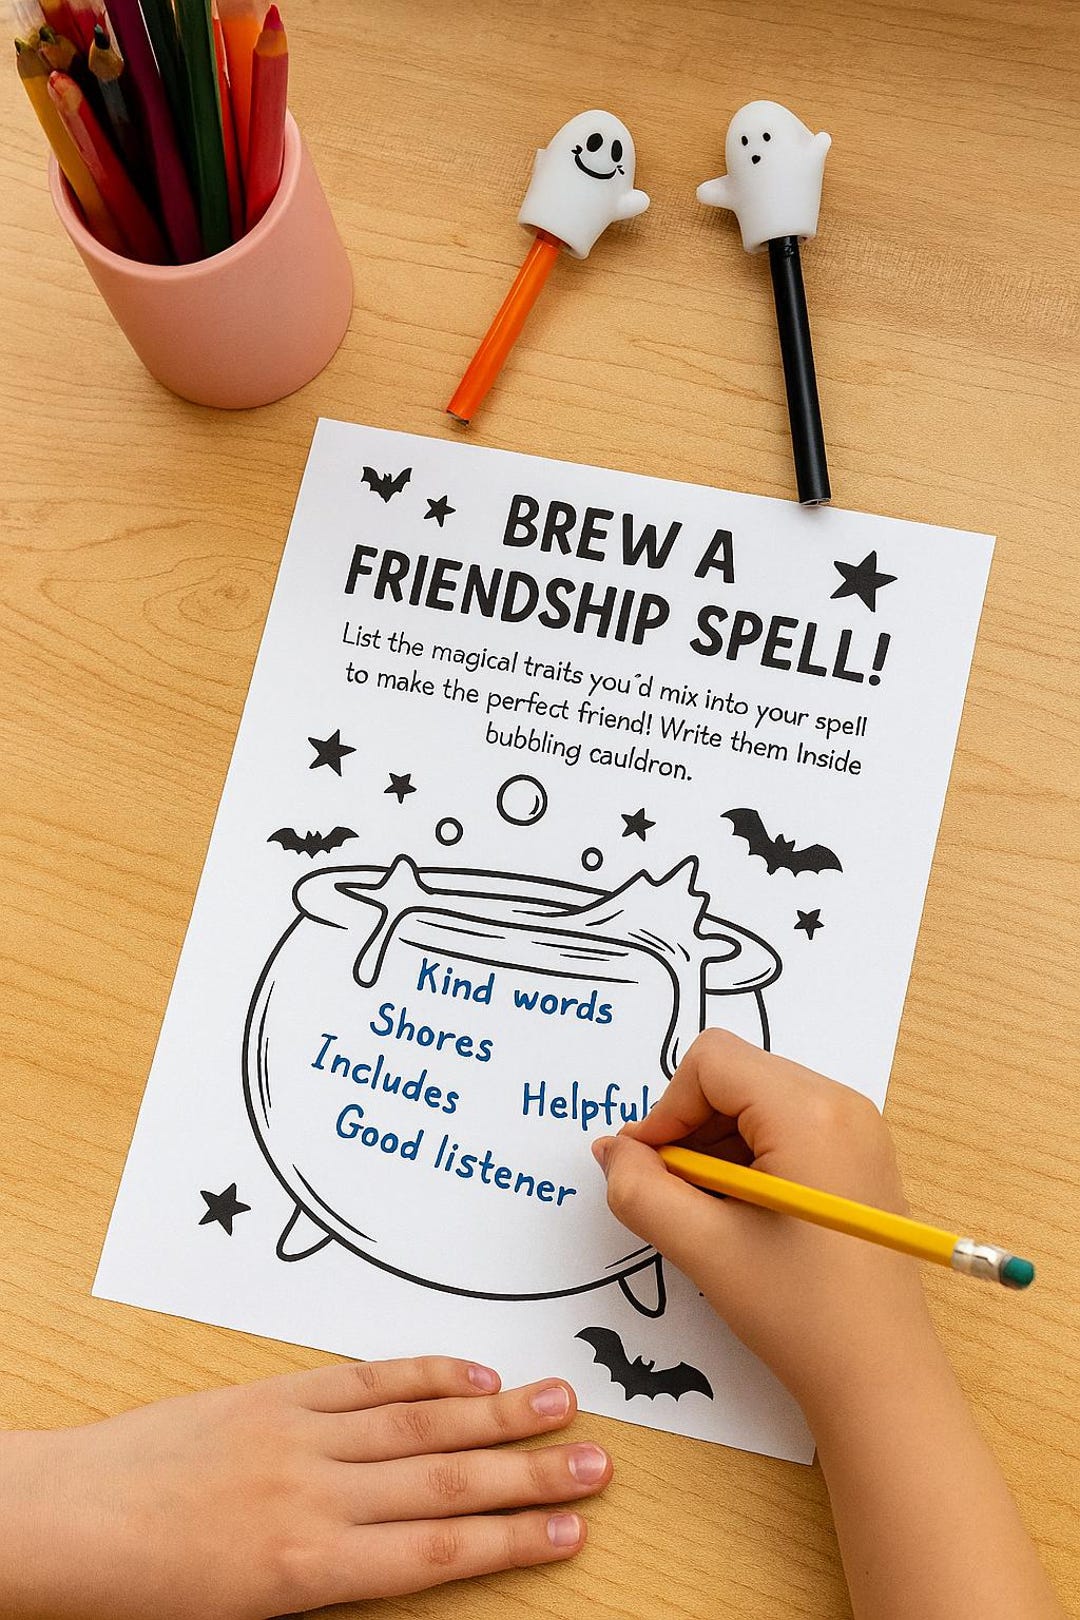 BREW A
FRIENDSHIP SPELL!
List the magical traits you'd mix into your spell
to make the perfect friend! Write them Inside
bubbling cauldron.
Kind words
Shores
Includes
Helpful
Good listener